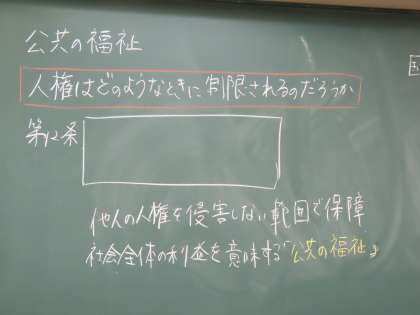 公共の福祉
人権はどのようなときに制限されるのだろうか
第12条
他人の人権を侵害しない範囲で保障
社会全体の利益を意味する「公共の福祉」
国